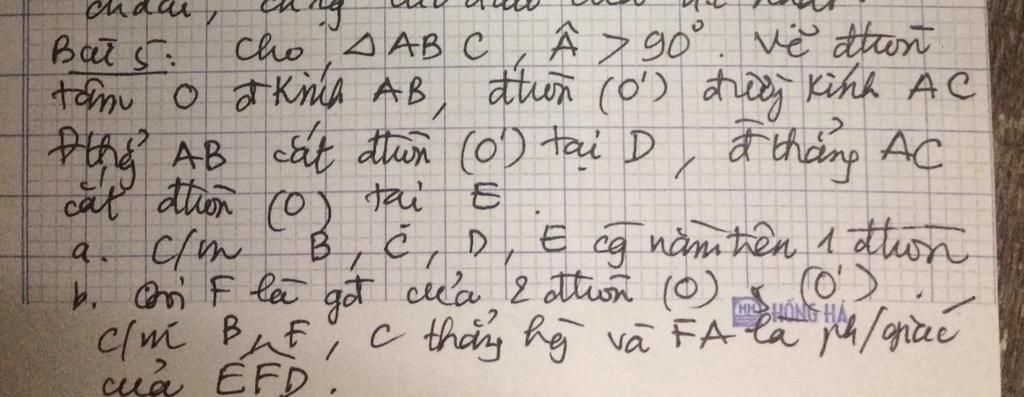 cũng
Bài 5: Cho △ABC, Â > 90°. Vẽ đtròn
tâm O đkính AB, đtròn (O') đường kính AC
Đthg AB cắt đtròn (O') tại D, đ thẳng AC
cắt đtròn (O) tại E.
a. C/m B, C, D, E cg nằm trên 1 đtròn
b. Gọi F là gđ của 2 đtròn (O) & (O').
HH HỒNG HÀ
C/m B, F, C thẳng hg và FA là ph/giác
của EFD.